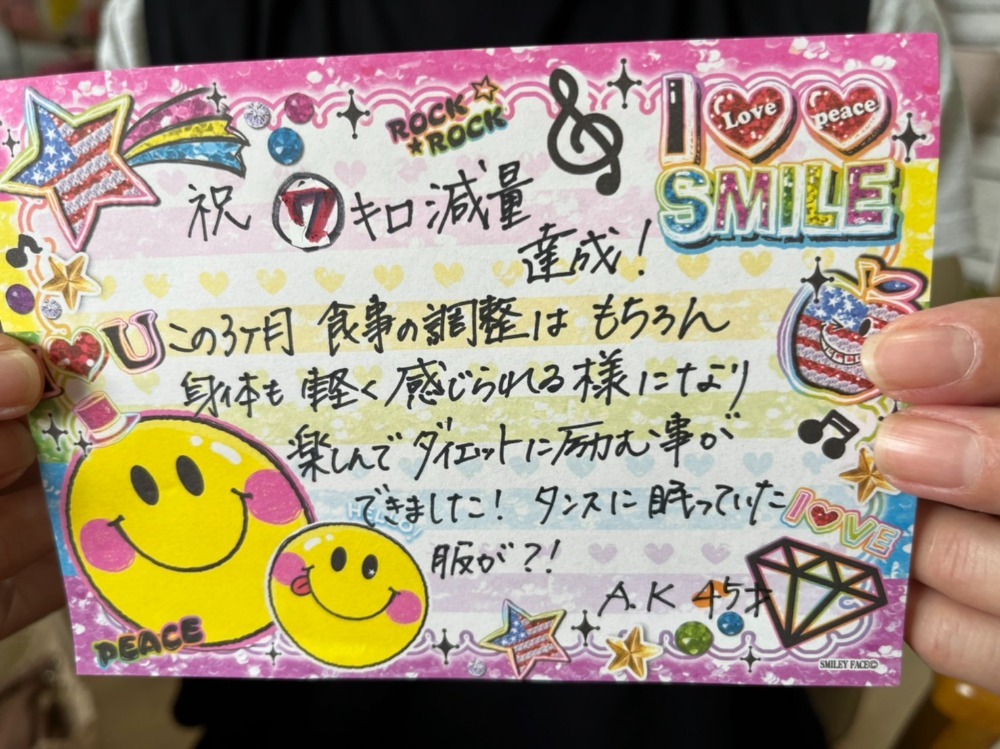 ROCK
ROCK
I Love peace
SMILE
祝 7キロ減量
達成!
U
この3ヶ月 食事の調整は もちろん
身体も 軽く感じられる様になり
楽しんで ダイエットに励む事が
できました! タンスに眠っていた
服が?!
HELLO
LOVE
A.K 45才
PEACE
SMILEY FACE©